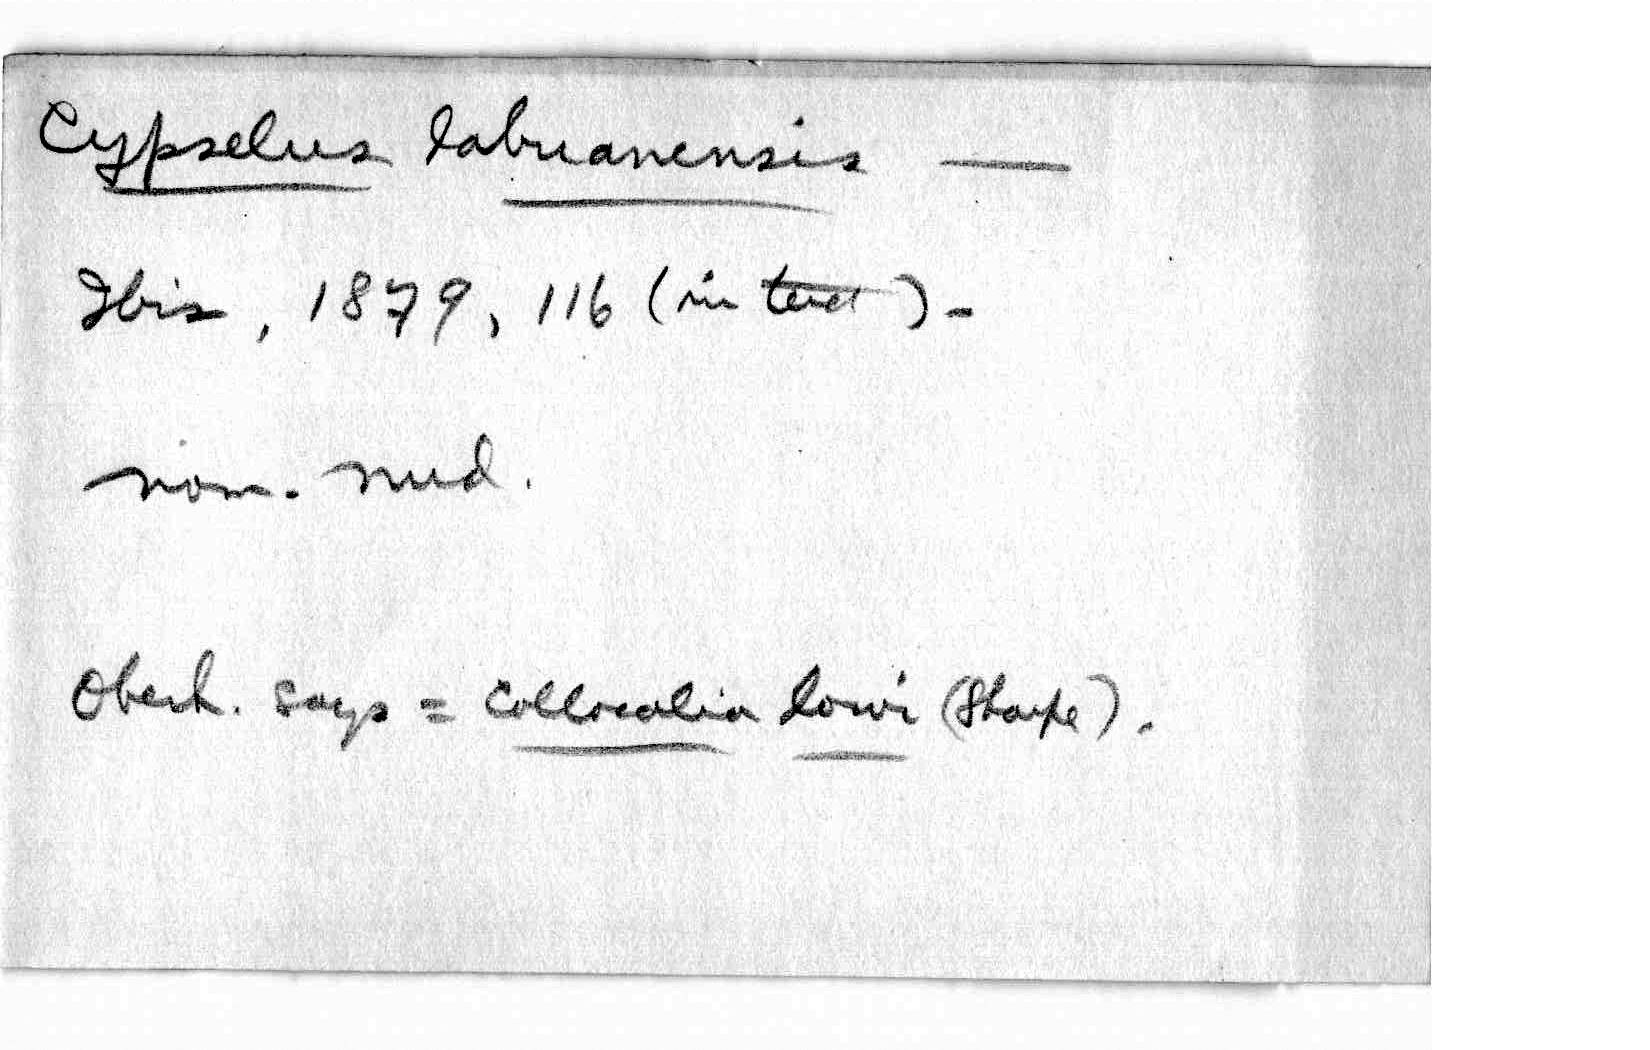 Cypselus labuanensis —
Ibis, 1879, 116 (in text) -
nom. nud.
Oberh. says = Collocalia lowi (Sharpe).